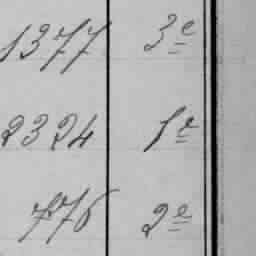 1377 3e
2324 1r
776 2e